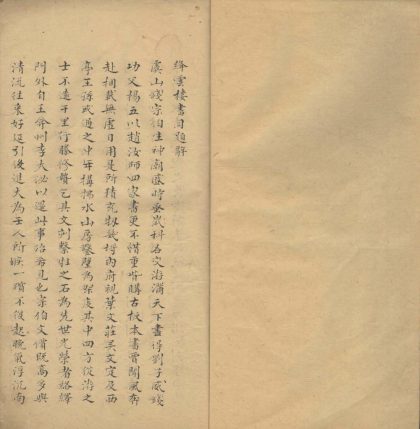 絳雲樓書目題辭
虞山錢宗伯生神廟盛時早歲科名交游滿天下盡得劉子威錢
功父楊五川趙汝師四家書更不惜重貲購古板本書賈聞風奔
赴捆載無虛日用是所積充牣幾埒內府視葉文莊吳文定及西
亭王孫或過之中年構拂水山房鑿壁為架庋其中四方從游之
士不遠千里行縢修贄乞其文刻繫牲之石為先世光榮者絡繹
門外自王弇州李大泌以還此事殆希見也宗伯文價既高多與
清流往來好延引後進大為壬人所嫉一躓不復起晚歲浮沉南